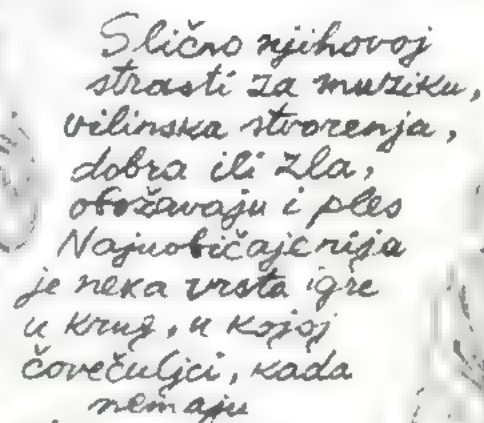 Slično njihovoj
strasti za muziku,
vilinska stvorenja,
dobra ili zla,
obožavaju i ples
Najuobičajenija
je neka vrsta igre
u krug, u kojoj
čovečuljci, kada
nemaju